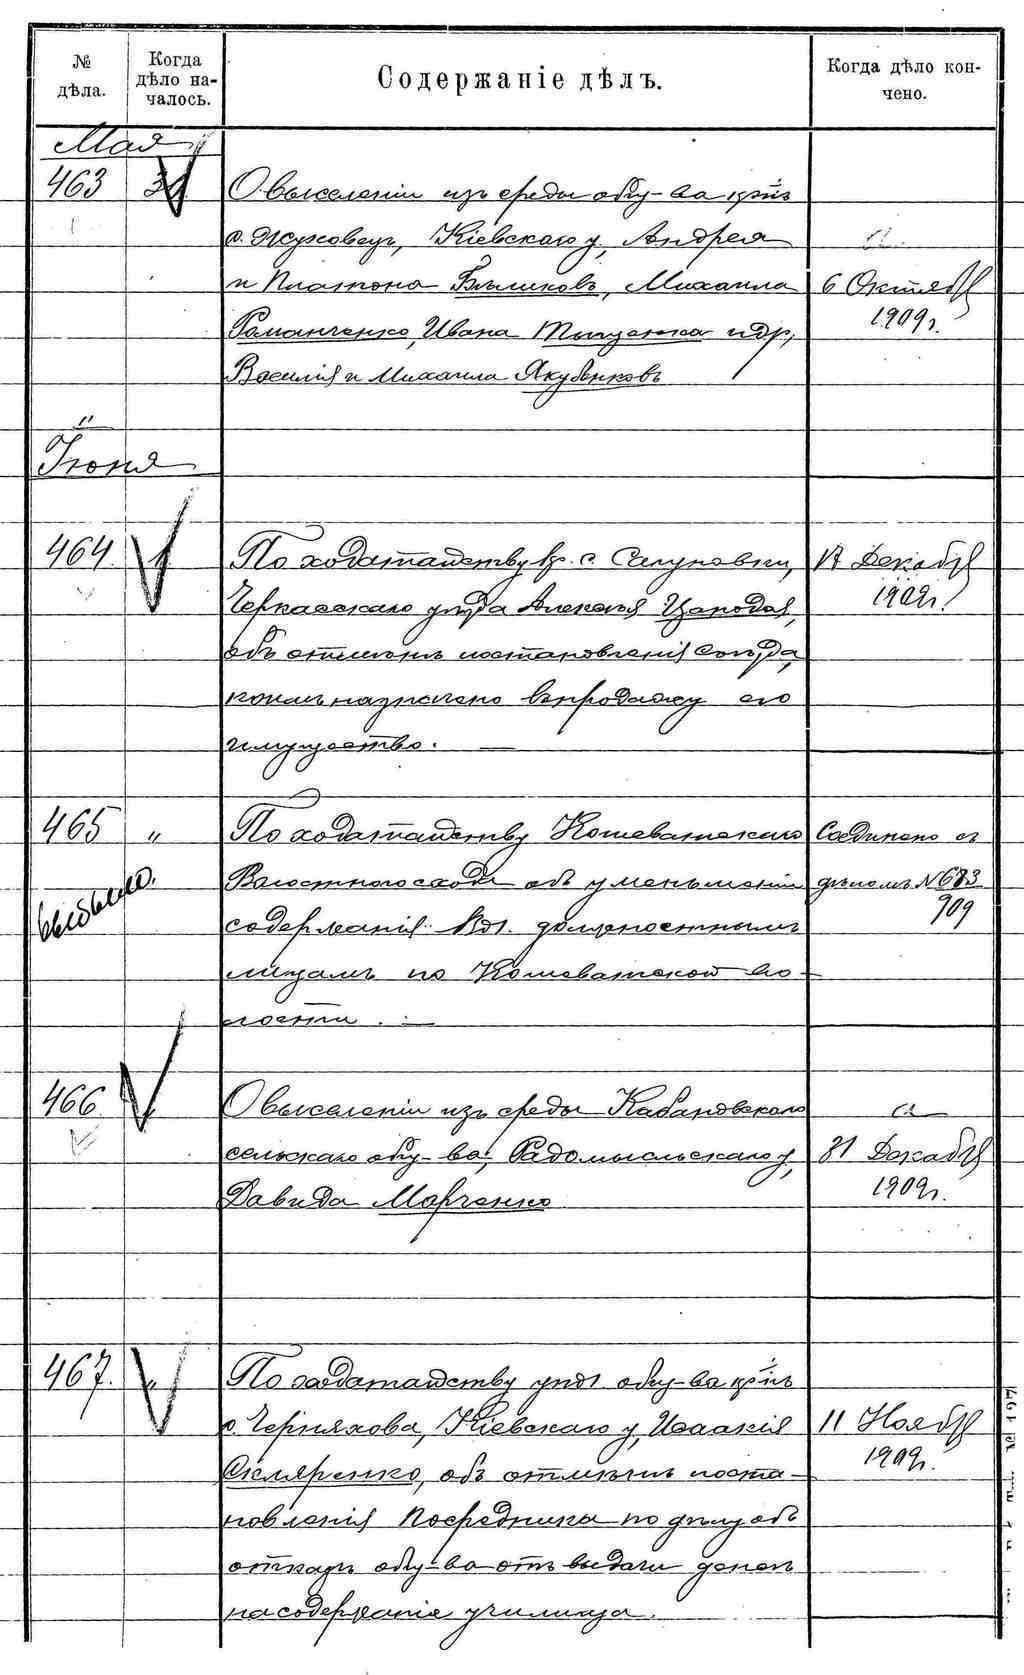 № дѣла.
Когда дѣло началось.
Содержаніе дѣлъ.
Когда дѣло кончено.
Мая
463
О выселеніи изъ среды общ-ва кр-нъ
с. Жуковецъ, Кіевскаго у., Андрея
и Платона Бѣликовъ, Михаила 6 Октября
Романченко, Ивана и др., 1909 г.
Василія и Михаила Якубенковъ
Іюня
464. 1 По ходатайству кр. с. Сагуновки, 17 Декабря
Черкасскаго уѣзда Алексѣя 1909 г.
объ отмѣнѣ постановленія Съѣзда,
коимъ назначено въ продажу его
имущество. —
465 „ По ходатайству Кошеватскаго Соединено съ
выбыло. Волостного схода объ уменьшеніи дѣломъ № 683
содержанія должностнымъ 909
лицамъ по Кошеватской во-
лости. —
466 О выселеніи изъ среды Кабановскаго
сельскаго общ-ва, Радомысльскаго у., 31 Декабря
Давида Марченко 1909 г.
467. „ По ходатайству упол. общ-ва кр-нъ
с. Черняхова, Кіевскаго у., Исаакія 11 Ноября
Скляренко, объ отмѣнѣ поста- 1909 г.
новленія Посредника по дѣлу объ
отказѣ общ-ва отъ выдачи денегъ
на содержаніе училища.